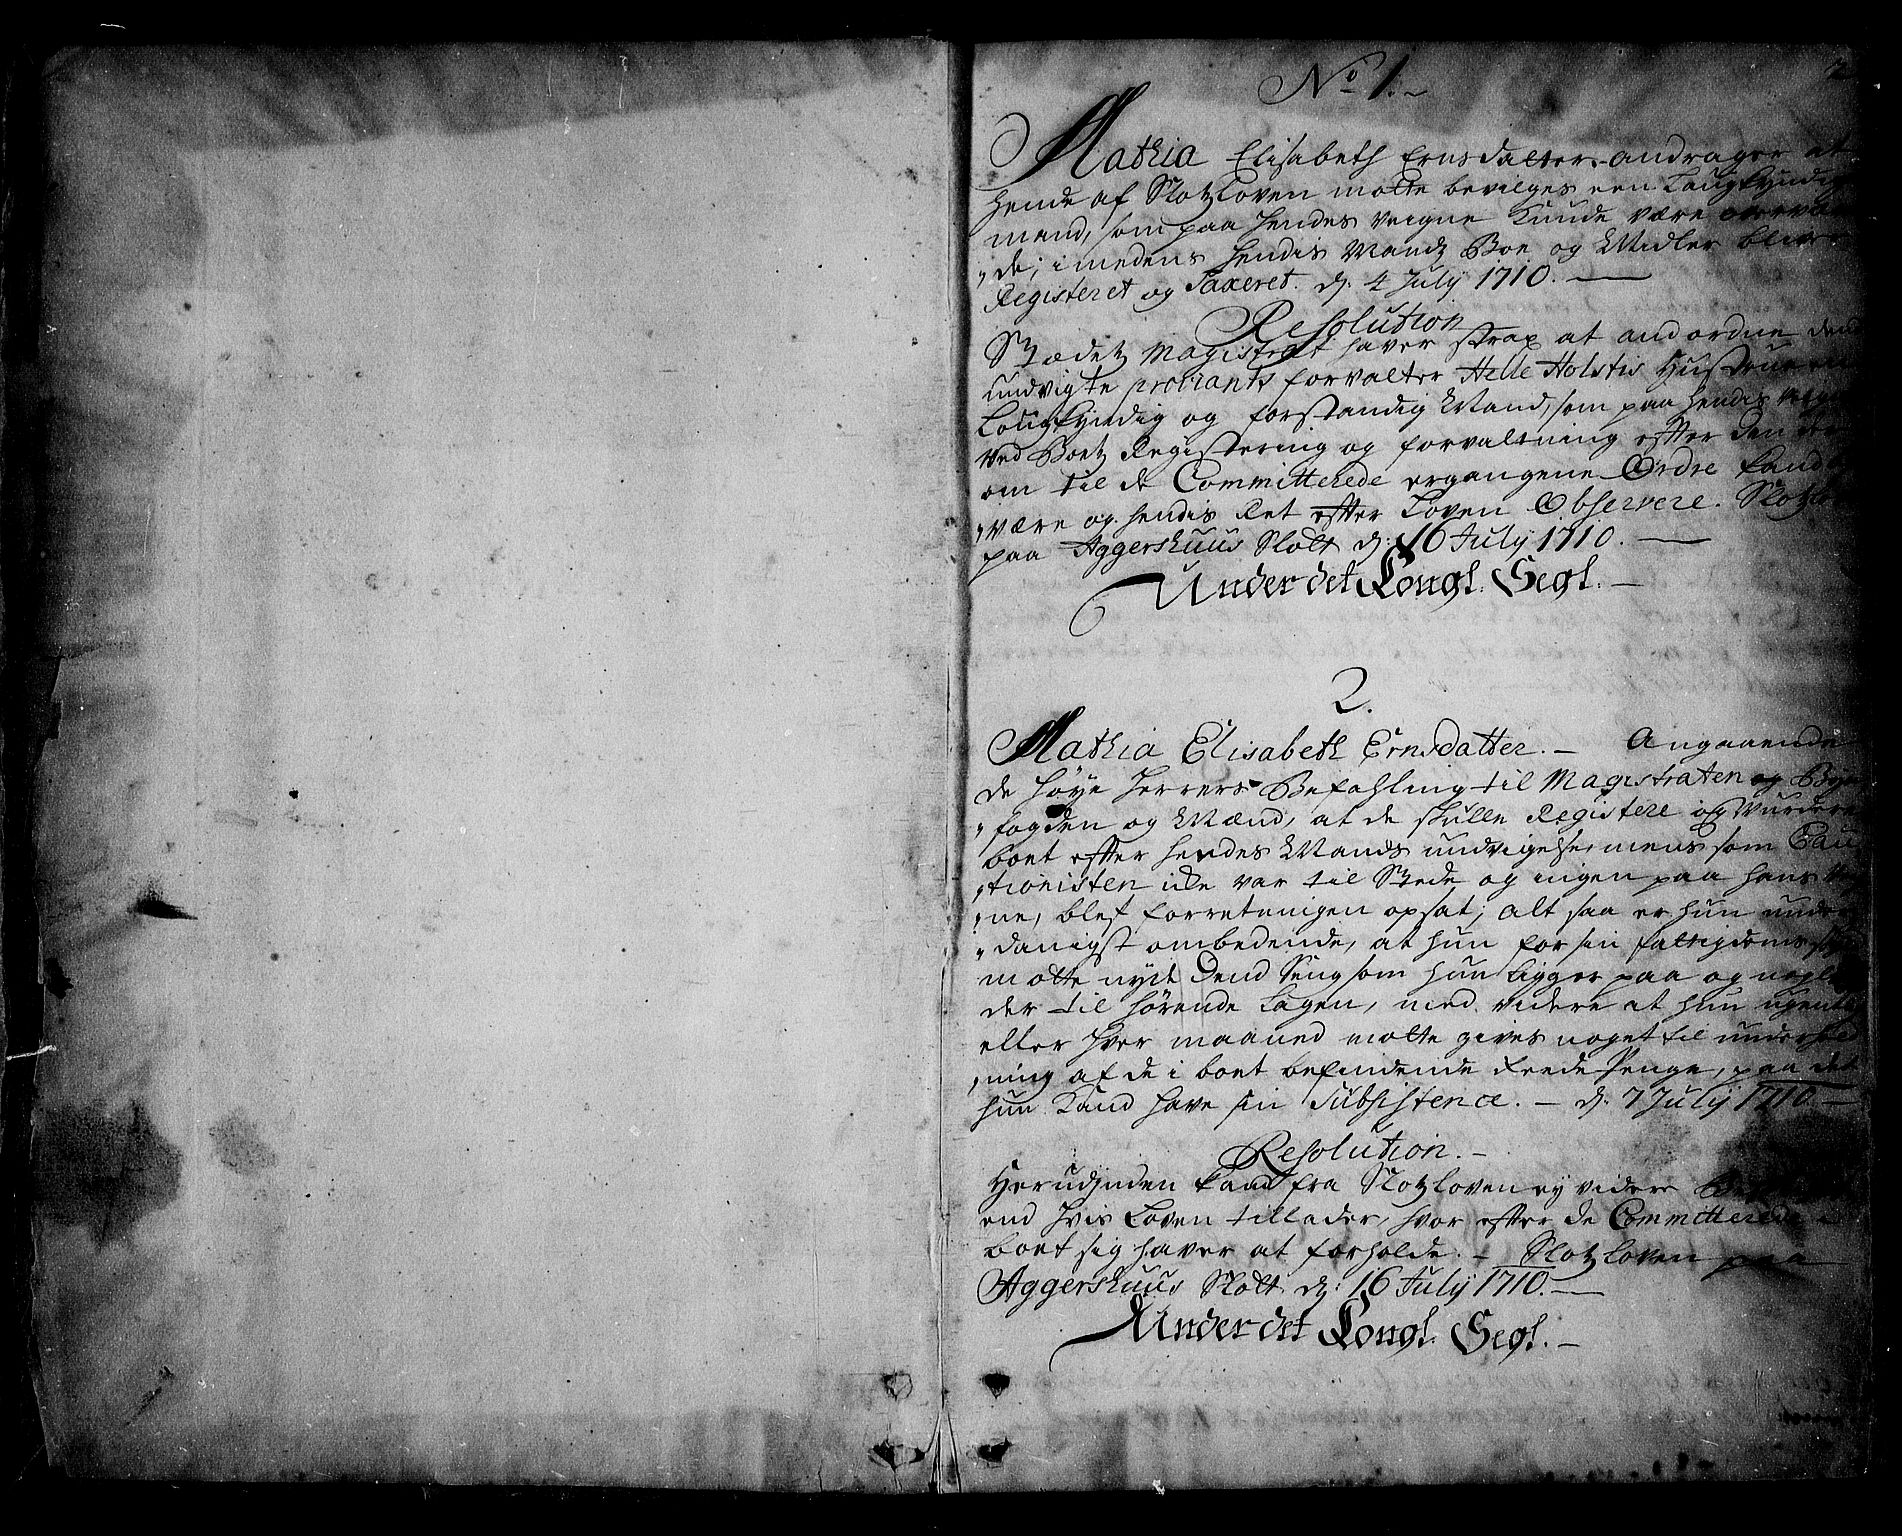 No 1.
2
Mathia Elisabeth Ernsdatter andrager at
hende af Slotzloven motte bevilges een Laugkyndig
mand, som paa hendes veigne kunde være overvæ-
de, imedens hendis Mandz Boe og Midler bliver
Registeret og Taxeret. d: 4 July 1710.
Resolution
Stædetz Magistrat haver strax at andordne dend
undvigte proviants forvalter Helle Holstis Hustrue en
Lougkyndig og forstandig Mand, som paa hendis veigne
ved Boetz Registering og forvaltning efter den der
om til de Committerede ergangene Ordre kand
være og hendis Ret efter Loven Observere. Slotzloven
paa Aggershuus Slott d: 16 July 1710.
Under det Kongl. Segl.
2.
Mathia Elisabeth Ernsdatter. Angaaende
de høye Herrers Befahling til Magistraten og Bye
fogden og Mænd, at de skulle Registere og Vurdere
boet efter hendes Mands undvigelse, mens som Cau
tionisten icke var til Stede og ingen paa hans veig
ne, blef forretningen opsat; alt saa er hun under
danigst ombedende, at hun for sin fattigdoms skyld
motte nyde Dend Seng som hun ligger paa og nogle
der til hørende Lagen, med videre at hun ugentl
eller hver maaned motte gives noget til underhold
ning af de i boet befindende reede Penge, paa det
hun kand have sin Subsistence. d: 7 July 1710.
Resolution.
Herudjnden kand fra Slotzloven ey videre
end hvis Loven tillader, hvor efter de Committerede
boet sig haver at forholde. Slotzloven paa
Aggershuus Slott d: 16 July 1710.
Under det Kongl. Segl.